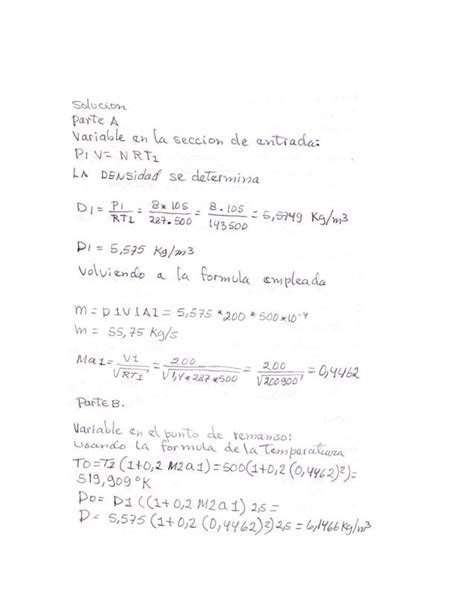 Solucion
parte A
Variable en la seccion de entrada:
P1 V= N RT1
LA DENSidad se determina
D1 = P1/RT1 = 8*105/287.500 = 8.105/143500 = 5,5749 Kg/m3
D1 = 5,575 Kg/m3
Volviendo a la formula empleada
m = D1V1A1 = 5,575 * 200 * 500 x10-4
m = 55,75 Kg/s
Ma1 = V1/√RT1 = 200/√1,4*287*500 = 200/√200900 = 0,4462
Parte B.
Variable en el punto de remanso:
usando la formula de la Temperatura
To=T1 (1+0,2 M2a1)=500(1+0,2 (0,4462)2)=
519,909°K
Do= D1 ((1+0,2 M2a1) 2,5 =
D= 5,575 (1+0,2 (0,4462)2) 2,5 = 6,1466 Kg/m3